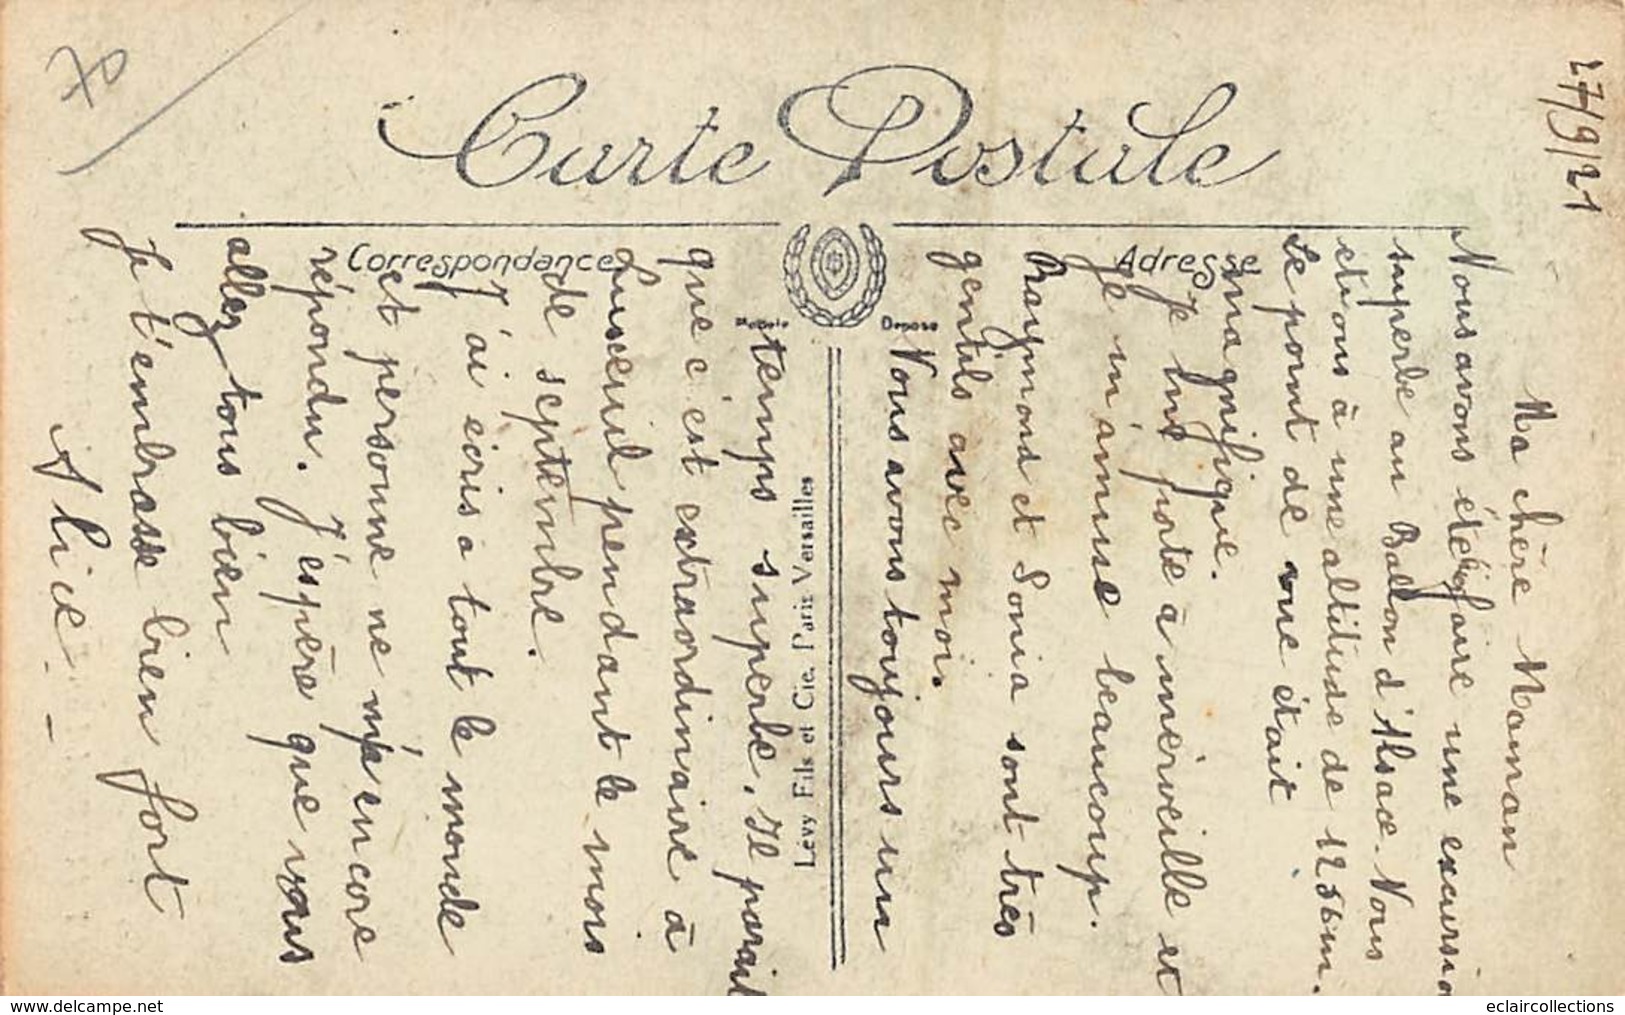 Carte Postale
Correspondance
Adresse
Modèle Déposé
Lévy Fils et Cie, Paris Versailles
27/9/21
Ma chère Maman
Nous avons été faire une excursion
superbe au Ballon d'Alsace. Nous
étions à une altitude de 1256m.
Le point de vue était
magnifique.
Je me porte à merveille et
Je m'amuse beaucoup.
Raymond et Sonia sont très
gentils avec moi.
Nous avons toujours un
temps superbe. Il parait
que c'est extraordinaire à
Luxeuil pendant le mois
de septembre.
J'ai écris a tout le monde
et personne ne m'a encore
répondu. J'espère que vous
allez tous bien
Je t'embrasse bien fort
Alice
eclaircollections